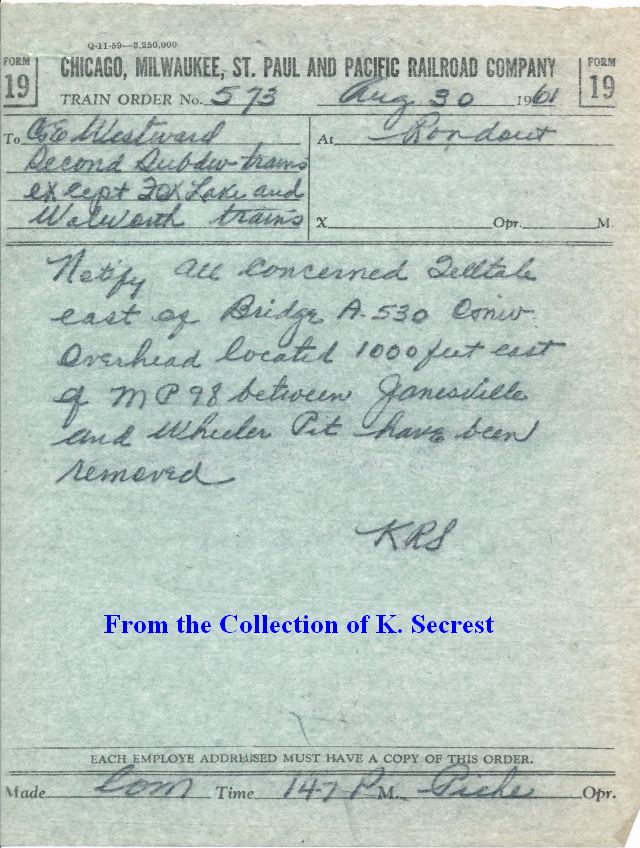 Q-11-59—3,250,000
FORM 19 CHICAGO, MILWAUKEE, ST. PAUL AND PACIFIC RAILROAD COMPANY FORM 19
TRAIN ORDER No. 573 Aug 30 1961
To C&E Westward At Rondout
Second Subdiv trains
except Fox Lake and
Walworth trains X Opr. M.
Notify all concerned Telltale
east of Bridge A-530 CNW
Overhead located 1000 feet east
of MP 98 between Janesville
and Wheeler Pit have been
removed
KRS
From the Collection of K. Secrest
EACH EMPLOYE ADDRESSED MUST HAVE A COPY OF THIS ORDER.
Made Com Time 147 P M. Opr.